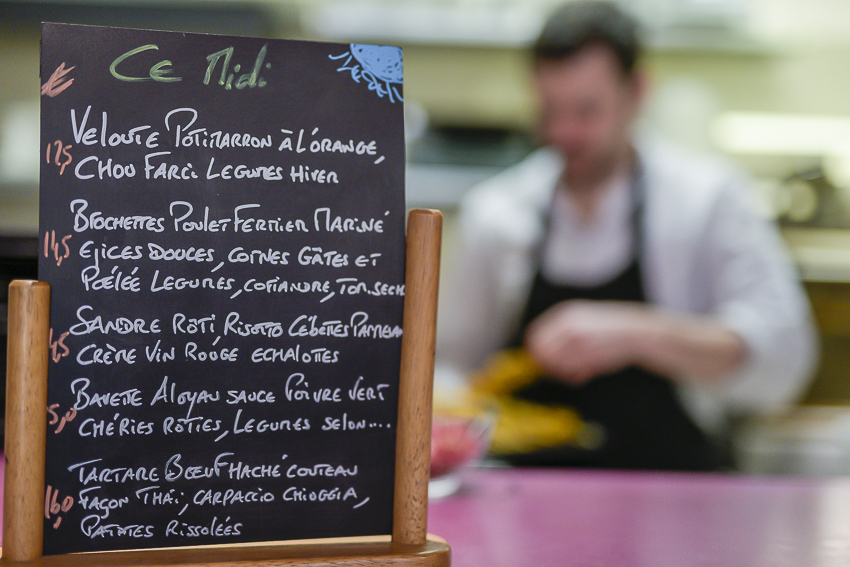 Ce Midi
€
Velouté Potimarron à L'orange,
12,5
Chou Farci Legumes Hiver
Brochettes Poulet Fermier Mariné
14,5
Epices Douces, cornes Gâtes et
Poêlée Legumes, coriandre, Tom.sech
Sandre Rôti Risotto Cébettes Parmesan
4,5
Crème Vin Rouge echalottes
Bavette Aloyau sauce Poivre Vert
5,0
Chéries Rôties, Legumes selon....
Tartare Bœuf Haché couteau
16,0
Façon Thaï, carpaccio Chioggia,
Patates Rissolées